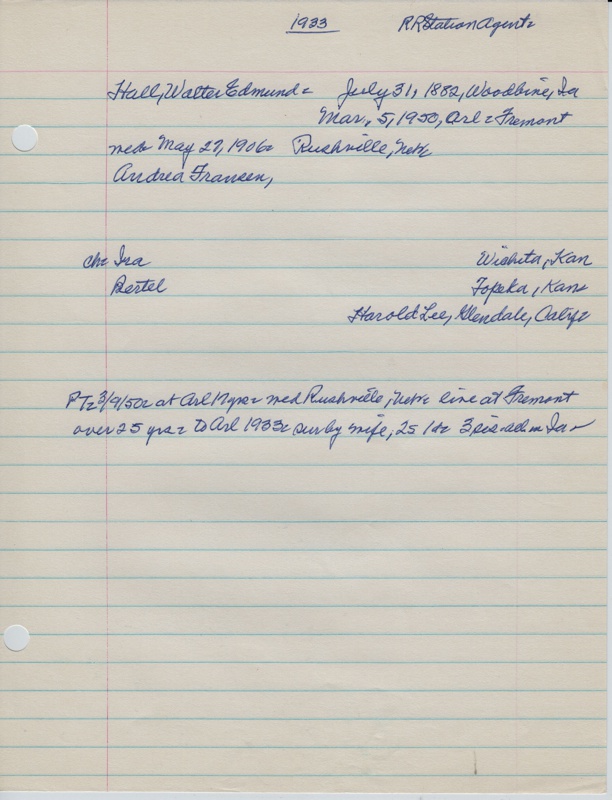 1933 RR Station Agent=
Hall, Walter Edmund = July 31, 1882, Woodbine, Ia
Mar, 5, 1950, Arl = Fremont
med= May 27, 1906= Rushville, Neb=
Andrea Fransen,
ch= Ira Wichita, Kan
Bertel Topeka, Kan=
Harold Lee, Glendale, Calif=
PT= 3/9/50= at Arl 17 yrs= med Rushville, Neb= live at Fremont
over 25 yrs= to Arl 1933= sur by wife, 2S 1d= 3 sis=all in Ia=